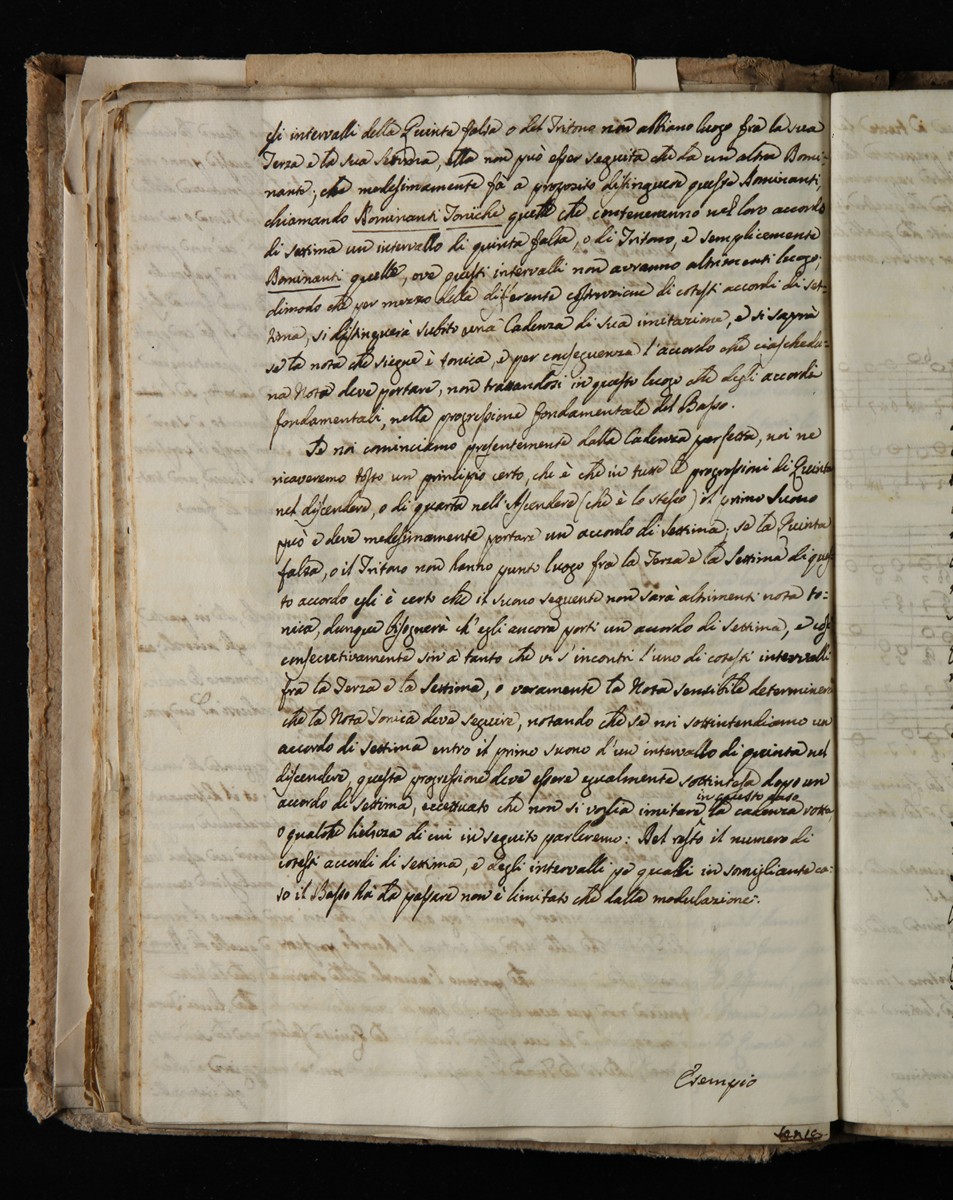 gli intervalli della Quinta falsa o del Tritono non abbiano luogo fra la sua
Terza e la sua settima, ella non può esser seguita che da un altra Domi-
nante; che medesimamente fà a proposito distinguere queste Dominanti,
chiamando Dominanti Toniche quelle che conteneranno nel loro accordo
di settima un intervallo di quinta falsa, o di Tritono, e semplicemente
Dominanti quelle, ove questi intervalli non avranno altrimenti luogo;
dimodo che per mezzo della differente costruzione di cotesti accordi di set-
tima, si distinguerà subito una Cadenza di sua imitazione, e si saprà
se la nota che siegue è tonica, e per conseguenza l'accordo che ciaschedu-
na Nota deve portare, non trattandosi in questo luogo che degli accordi
fondamentali, nella progressione fondamentale del Basso.
Se noi cominciamo presentemente dalla Cadenza perfetta, noi ne
ricaveremo tosto un principio certo, che è che in tutte le progressioni di Quinta
nel discendere, o di quarta nell'Ascendere (che è lo stesso) il primo Suono
può e deve medesimamente portare un accordo di Settima; se la Quinta
falsa, o il Tritono non hanno punto luogo fra la Terza e la Settima di ques-
to accordo egli è certo che il suono seguente non sarà altrimenti nota to-
nica, dunque bisognerà ch'egli ancora porti un accordo di settima, e così
consecutivamente sin'a tanto che vi s'incontri l'uno di cotesti intervalli
fra la Terza e la Settima, o veramente la Nota sensibile determinerà
che la Nota Tonica deve seguire, notando che se noi sottintendiamo un
accordo di settima entro il primo suono d'un intervallo di quinta nel
discendere, questa progressione deve essere egualmente sottintesa dopo un
accordo di settima, eccettuato che non si voglia imitare in questo passo la cadenza rotta
o qualche licenza di cui in seguito parleremo: Del resto il numero di
cotesti accordi di settima, e degli intervalli pe quali in somigliante ca-
so il Basso ha da passare non è limitato che dalla modulazione.
Esempio